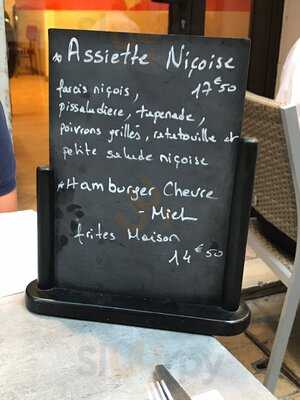 * Assiette Niçoise
farcis niçois, 17€50
pissaladiere, tapenade,
poivrons grillés, ratatouille et
petite salade niçoise
* Hamburger Chevre
- Miel
frites Maison
14€50